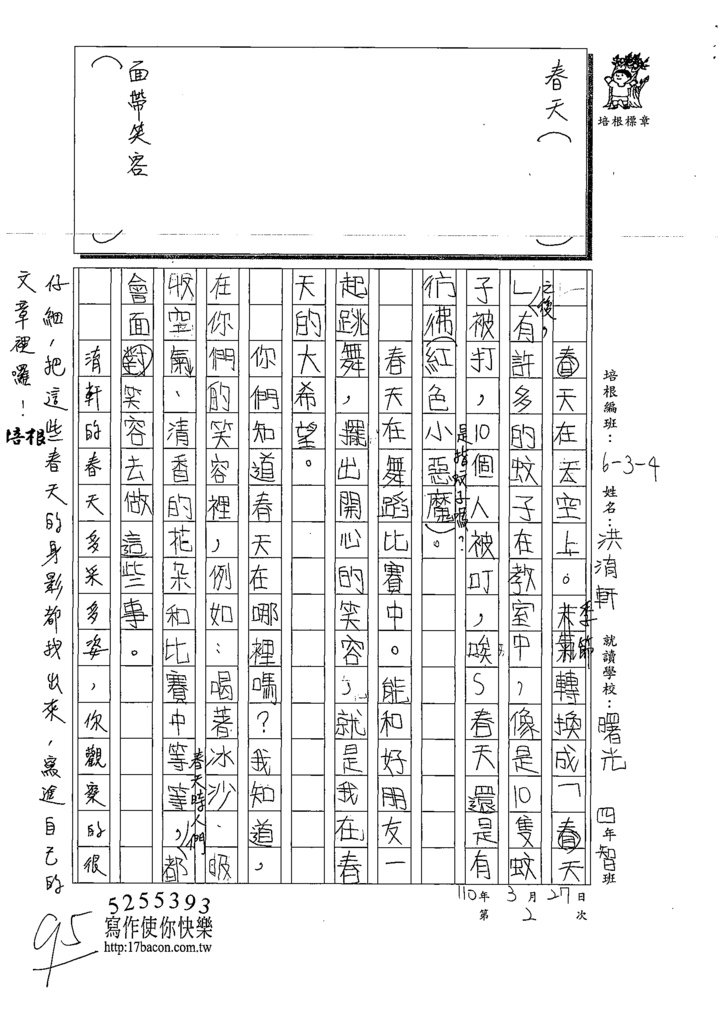 培根標章
春天︵　︶
︵面帶笑容　︶
培根編班：6-3-4 姓名：洪淯軒 就讀學校：曙光 四年智班
110年3月27日
第2次
春天在天空上。季節轉換成「春天
」之後，有許多的蚊子在教室中，像是10隻蚊
子被打，10個人被叮，唉～春天還是有
彷彿紅色小惡魔。
是指蚊子嗎？
春天在舞蹈比賽中。能和好朋友一
起跳舞，擺出開心的笑容，就是我在春
天的大希望。
你們知道春天在哪裡嗎？我知道，
在你們的笑容裡，例如：喝著冰沙、吸
吸空氣、清香的花朵和比賽中等等，春天時人們都
會面對笑容去做這些事。
淯軒的春天多采多姿，你觀察的很
仔細，把這些春天的身影都找出來，寫進自己的
文章裡囉！培根
95
5255393
寫作使你快樂
http:17bacon.com.tw